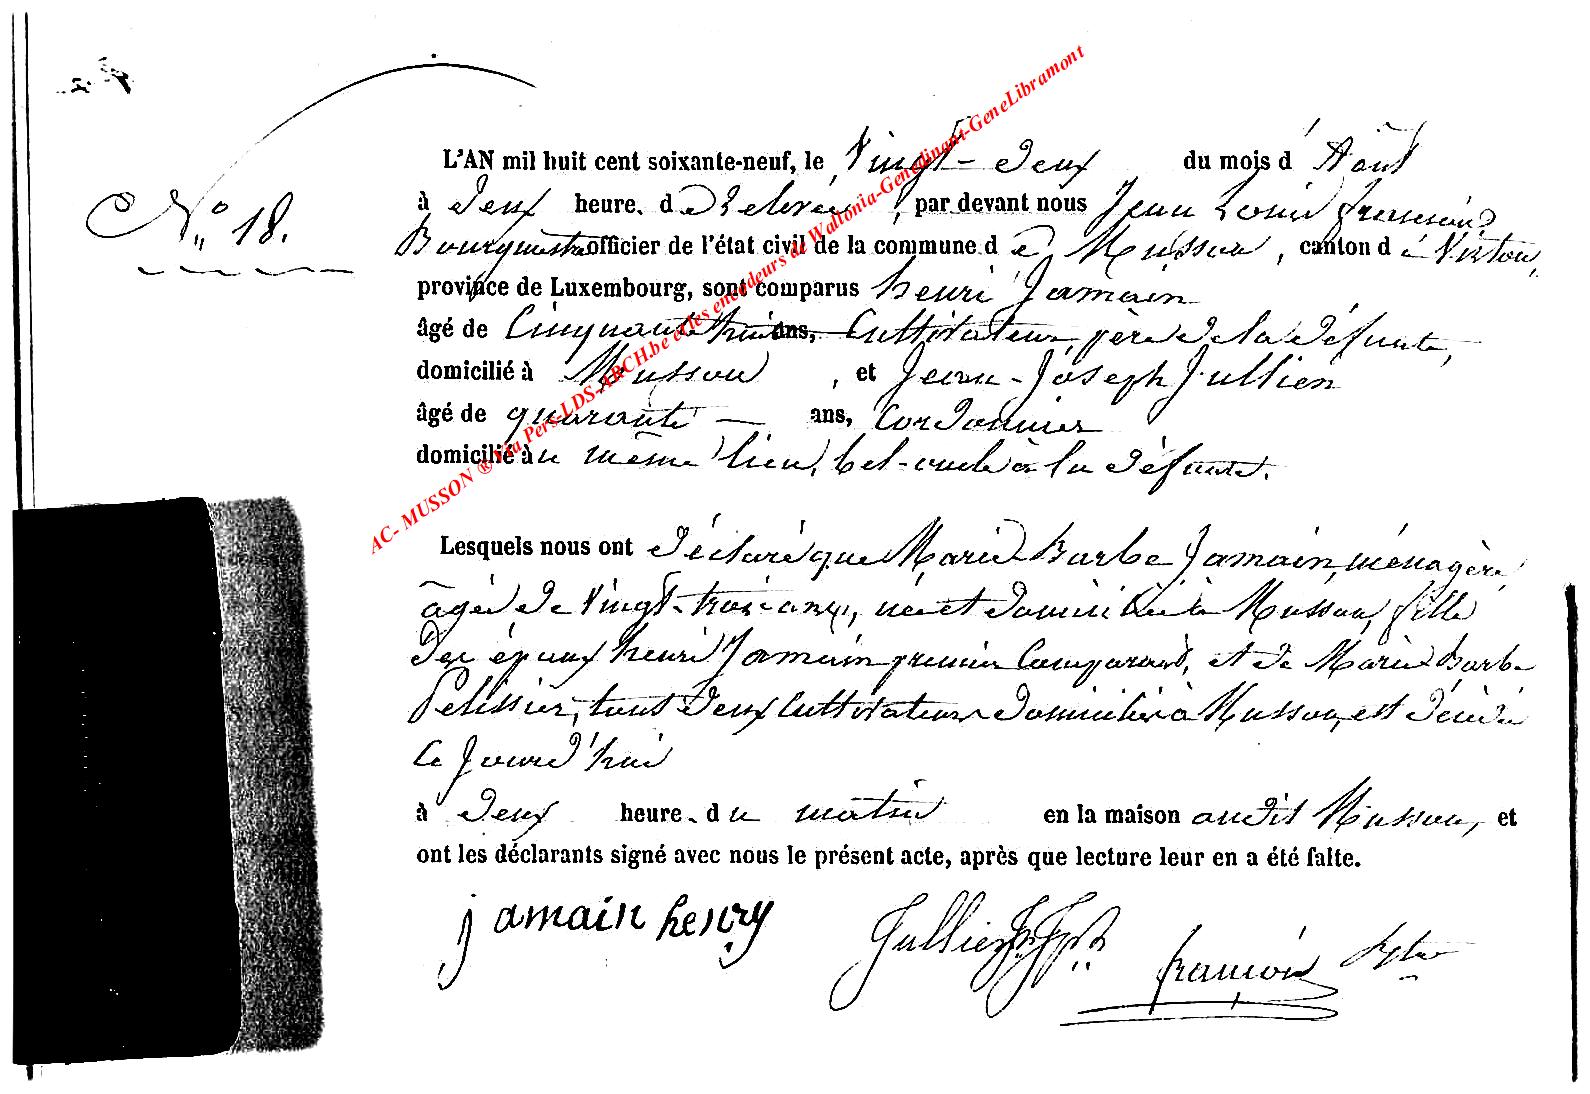 N° 18.
L'AN mil huit cent soixante-neuf, le Vingt-deux du mois d'Août
à deux heure. de Relevée, par devant nous Jean Louis François
Bourgmestre officier de l'état civil de la commune de Musson, canton de Virton,
province de Luxembourg, sont comparus henri Jamain
âgé de Cinquante huit ans, Cultivateur, père de la défunte,
domicilié à Musson, et Jean-Joseph Jullien
âgé de quarante — ans, Cordonnier
domicilié au même lieu, bel-oncle à la défunte.
Lesquels nous ont déclaré que Marie Barbe Jamain, ménagère
âgée de Vingt-trois ans, née et domiciliée à Musson, fille
des époux henri Jamain premier Comparant, et de Marie Barbe
Pelissier, tous deux Cultivateurs domiciliés à Musson, est décédée
ce jourd'hui
à deux heure. du matin en la maison audit Musson, et
ont les déclarants signé avec nous le présent acte, après que lecture leur en a été faite.
jamain henry
Jullien Jn Jph
françois
AC- MUSSON ® Via Pers-LDS-ARCH.be et les encodeurs de Wallonia-Genedinant-GeneLibramont